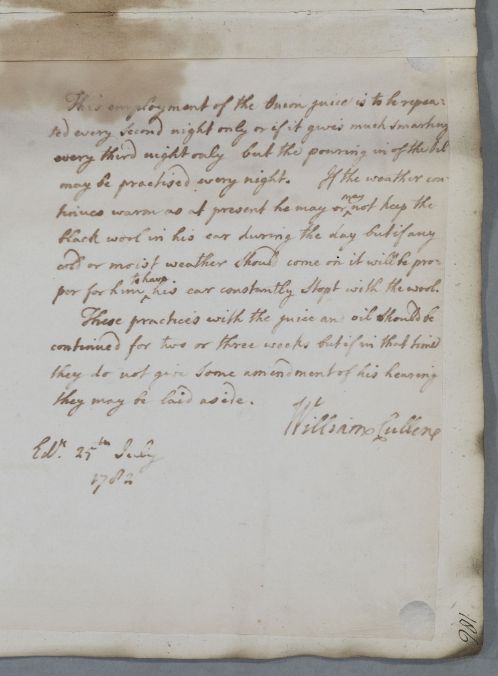 This employment of the Onion juice is to be repea-
ted every second night only or if it gives much smarting
every third night only but the pouring in of the oil
may be practised every night. If the weather con-
tinues warm as at present he may or may not keep the
black wool in his ear during the day but if any
cold or moist weather should come on it will be pro-
per for him to have his ear constantly stopt with the wool.
These practices with the juice an oil should be
continued for two or three weeks but if in that time
they do not give some amendment of his hearing
they may be laid aside.
William Cullen
Edr. 25th July
1782
186